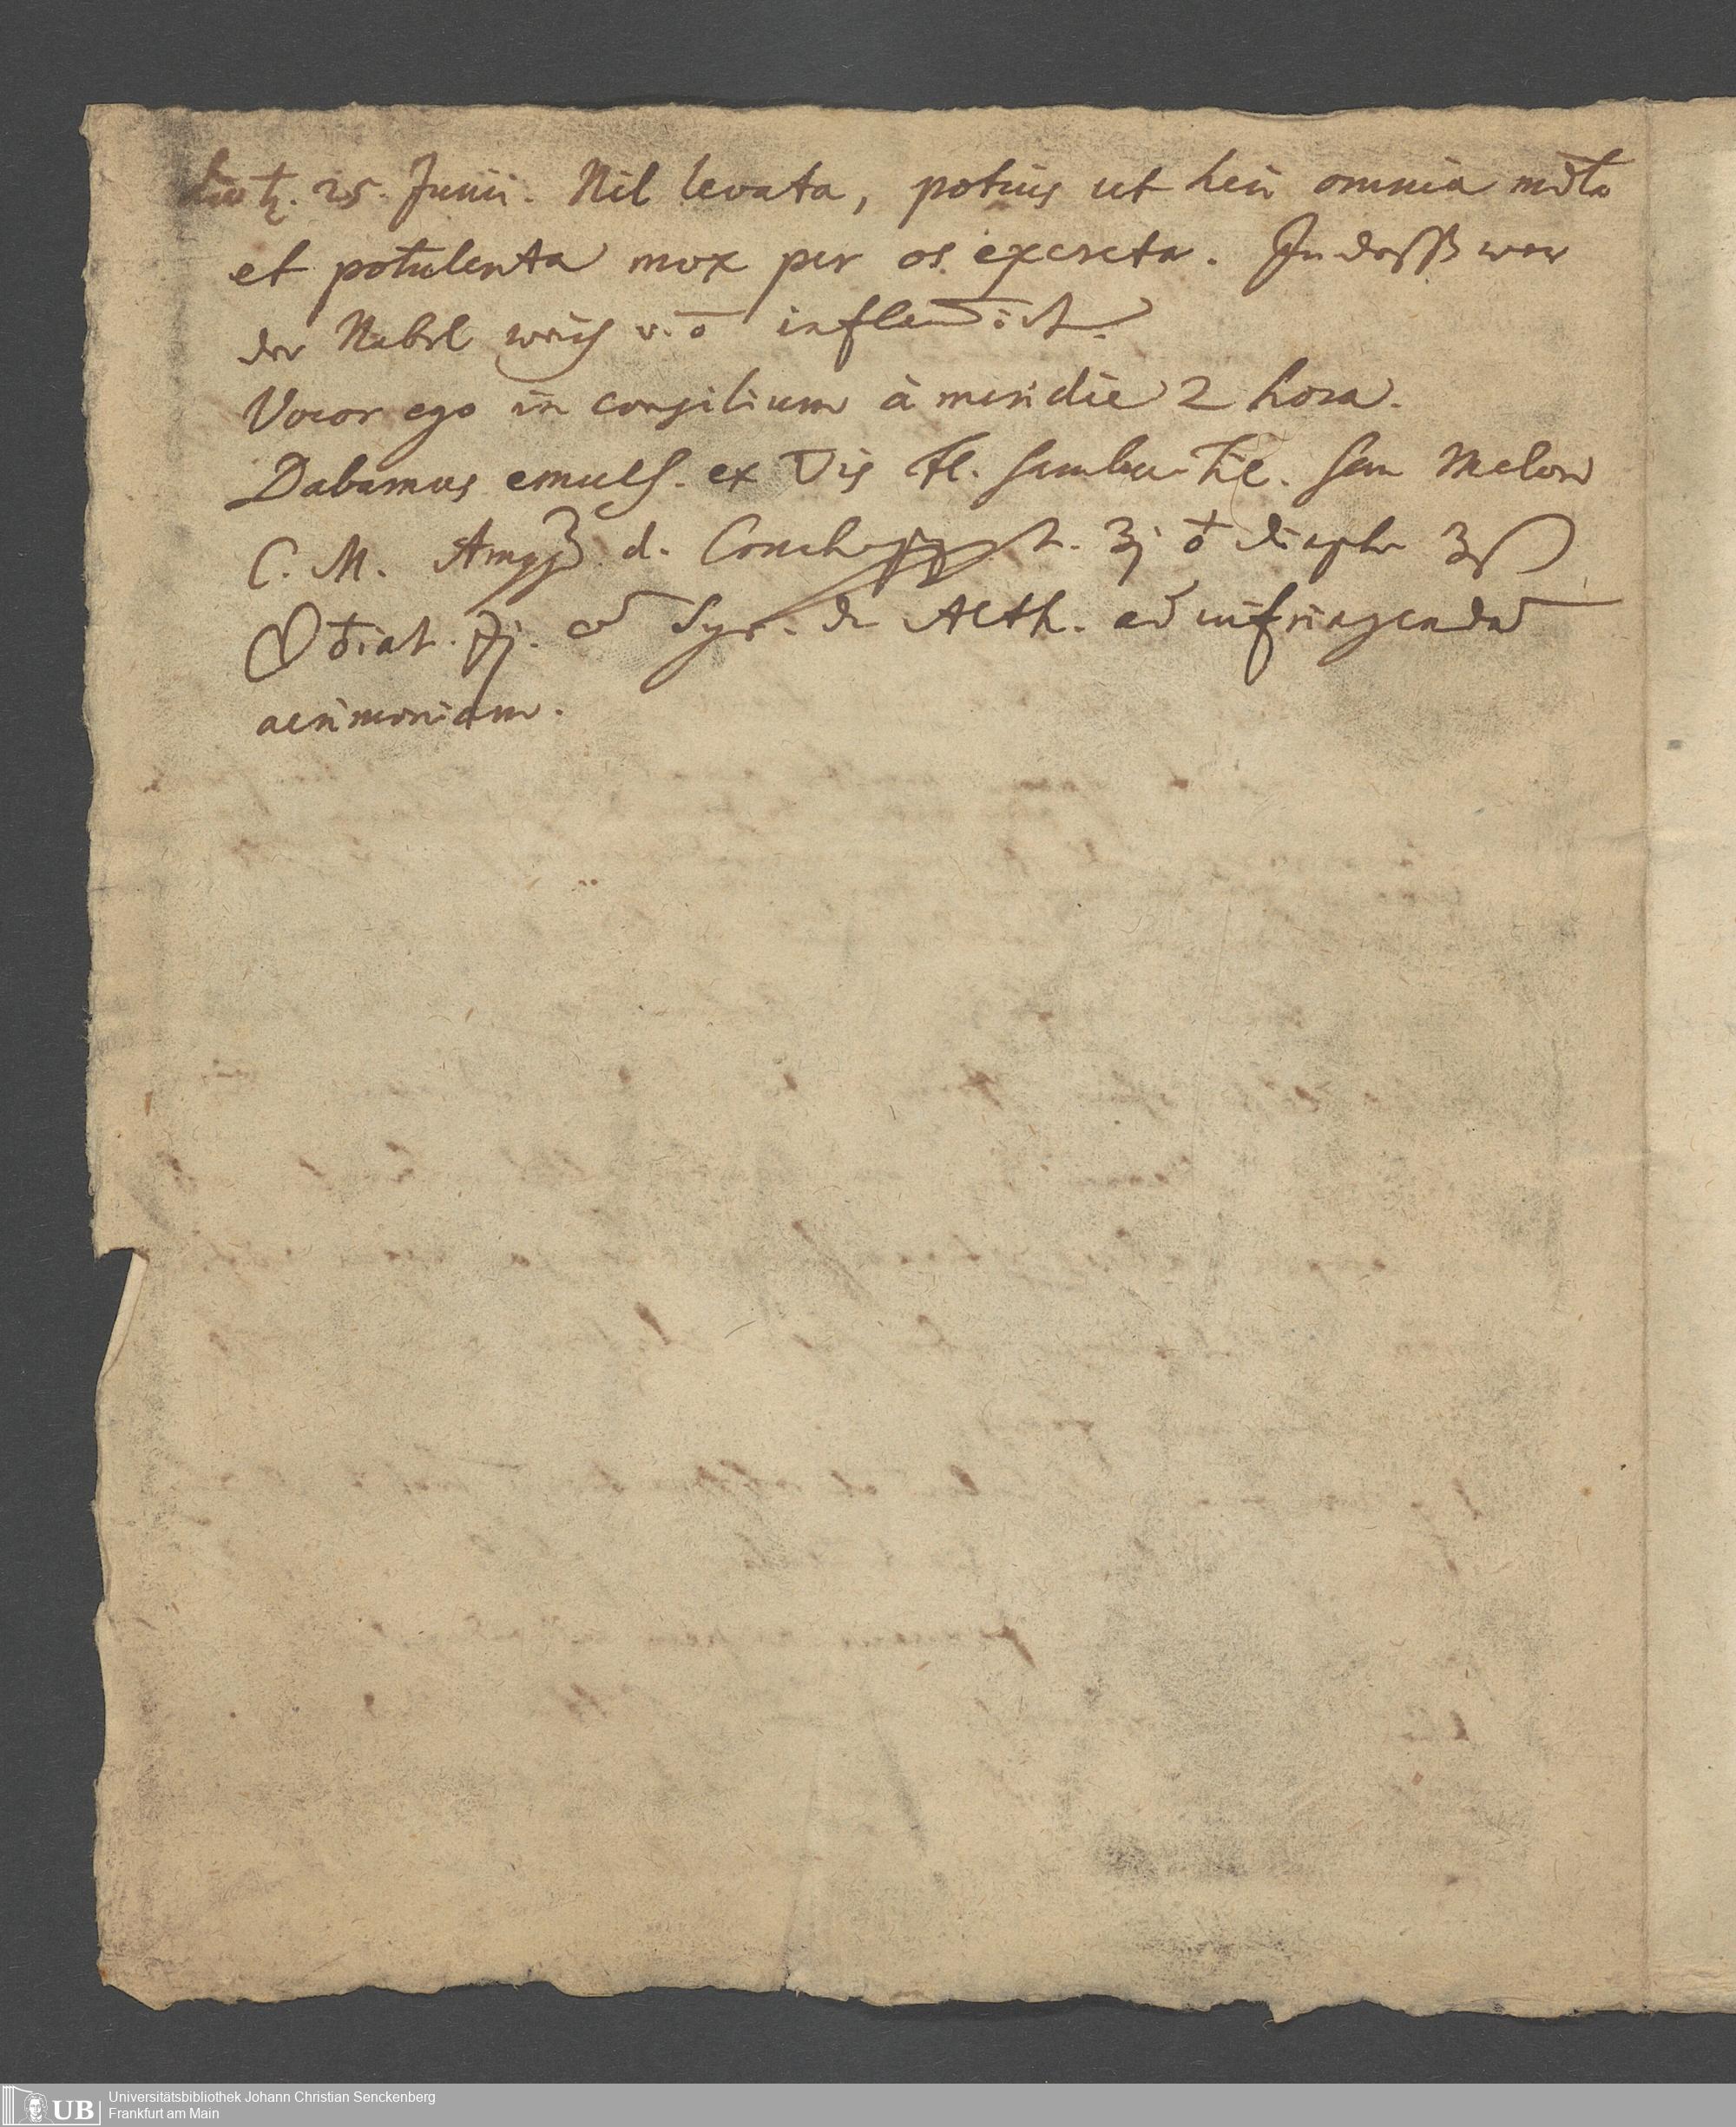 die ♄. 25. Junii. Nil levata, potius ut heri omnia
et potulenta mox per os excreta. Indeßß war
der Nabel weich u. ō
Vocor ego in consilium à meridie 2 hora.
Dabamus emuls. ex ▽is fl. Sambuc. Til. Sem Melon
C. M. d. ʒj ♁ diaph ʒß
☿iat. Syr. de Alth. ad infringendā
acrimoniam.
UB Universitätsbibliothek Johann Christian Senckenberg
Frankfurt am Main